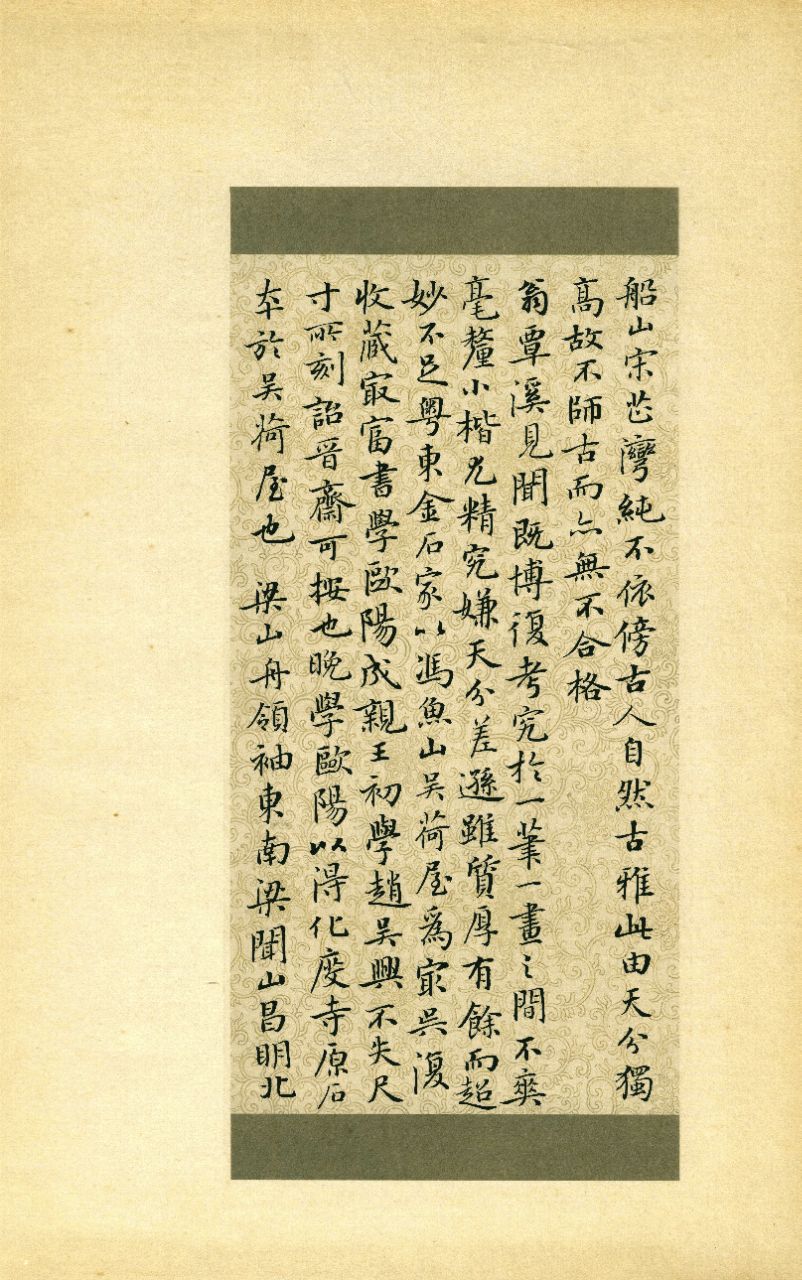 船山宋芷灣純不依傍古人自然古雅此由天分獨
高故不師古而亦無不合格
翁覃溪見聞既博復考究於一筆一畫之間不爽
毫釐小楷尤精究嫌天分差遜雖質厚有餘而超
妙不足粵東金石家以馮魚山吳荷屋為冣吳復
收藏冣富書學歐陽成親王初學趙吳興不失尺
寸所刻詒晉齋可按也晚學歐陽以得化度寺原石
本於吳荷屋也 梁山舟領袖東南梁聞山昌明北